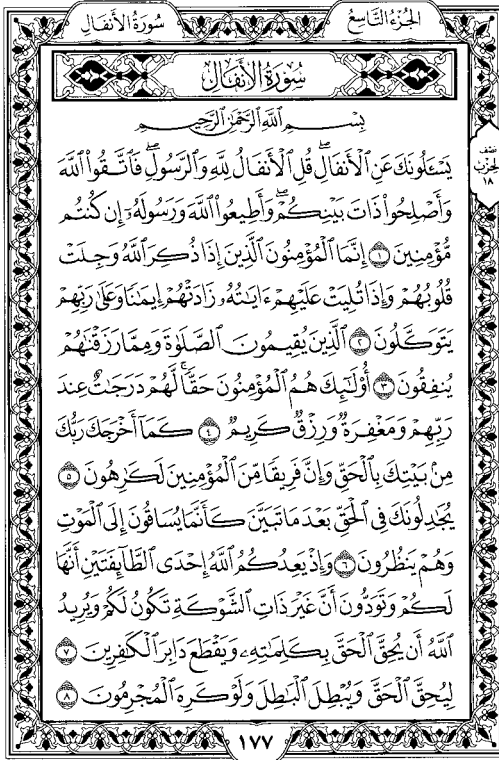 سُورَةُ الأَنفَالِ
الجُزءُ التَّاسِعُ
سُورَةُ الأَنفَالِ
بِسْمِ ٱللَّهِ ٱلرَّحْمَٰنِ ٱلرَّحِيمِ
نصف
الحزب
١٨
يَسْـَٔلُونَكَ عَنِ ٱلْأَنفَالِۖ قُلِ ٱلْأَنفَالُ لِلَّهِ وَٱلرَّسُولِۖ فَٱتَّقُوا۟ ٱللَّهَ
وَأَصْلِحُوا۟ ذَاتَ بَيْنِكُمْۖ وَأَطِيعُوا۟ ٱللَّهَ وَرَسُولَهُۥٓ إِن كُنتُم
مُّؤْمِنِينَ ١ إِنَّمَا ٱلْمُؤْمِنُونَ ٱلَّذِينَ إِذَا ذُكِرَ ٱللَّهُ وَجِلَتْ
قُلُوبُهُمْ وَإِذَا تُلِيَتْ عَلَيْهِمْ ءَايَٰتُهُۥ زَادَتْهُمْ إِيمَٰنًا وَعَلَىٰ رَبِّهِمْ
يَتَوَكَّلُونَ ٢ ٱلَّذِينَ يُقِيمُونَ ٱلصَّلَوٰةَ وَمِمَّا رَزَقْنَٰهُمْ
يُنفِقُونَ ٣ أُو۟لَٰٓئِكَ هُمُ ٱلْمُؤْمِنُونَ حَقًّاۚ لَّهُمْ دَرَجَٰتٌ عِندَ
رَبِّهِمْ وَمَغْفِرَةٌ وَرِزْقٌ كَرِيمٌ ٤ كَمَآ أَخْرَجَكَ رَبُّكَ
مِنۢ بَيْتِكَ بِٱلْحَقِّ وَإِنَّ فَرِيقًا مِّنَ ٱلْمُؤْمِنِينَ لَكَٰرِهُونَ ٥
يُجَٰدِلُونَكَ فِى ٱلْحَقِّ بَعْدَمَا تَبَيَّنَ كَأَنَّمَا يُسَاقُونَ إِلَى ٱلْمَوْتِ
وَهُمْ يَنظُرُونَ ٦ وَإِذْ يَعِدُكُمُ ٱللَّهُ إِحْدَى ٱلطَّآئِفَتَيْنِ أَنَّهَا
لَكُمْ وَتَوَدُّونَ أَنَّ غَيْرَ ذَاتِ ٱلشَّوْكَةِ تَكُونُ لَكُمْ وَيُرِيدُ
ٱللَّهُ أَن يُحِقَّ ٱلْحَقَّ بِكَلِمَٰتِهِۦ وَيَقْطَعَ دَابِرَ ٱلْكَٰفِرِينَ ٧
لِيُحِقَّ ٱلْحَقَّ وَيُبْطِلَ ٱلْبَٰطِلَ وَلَوْ كَرِهَ ٱلْمُجْرِمُونَ ٨
١٧٧